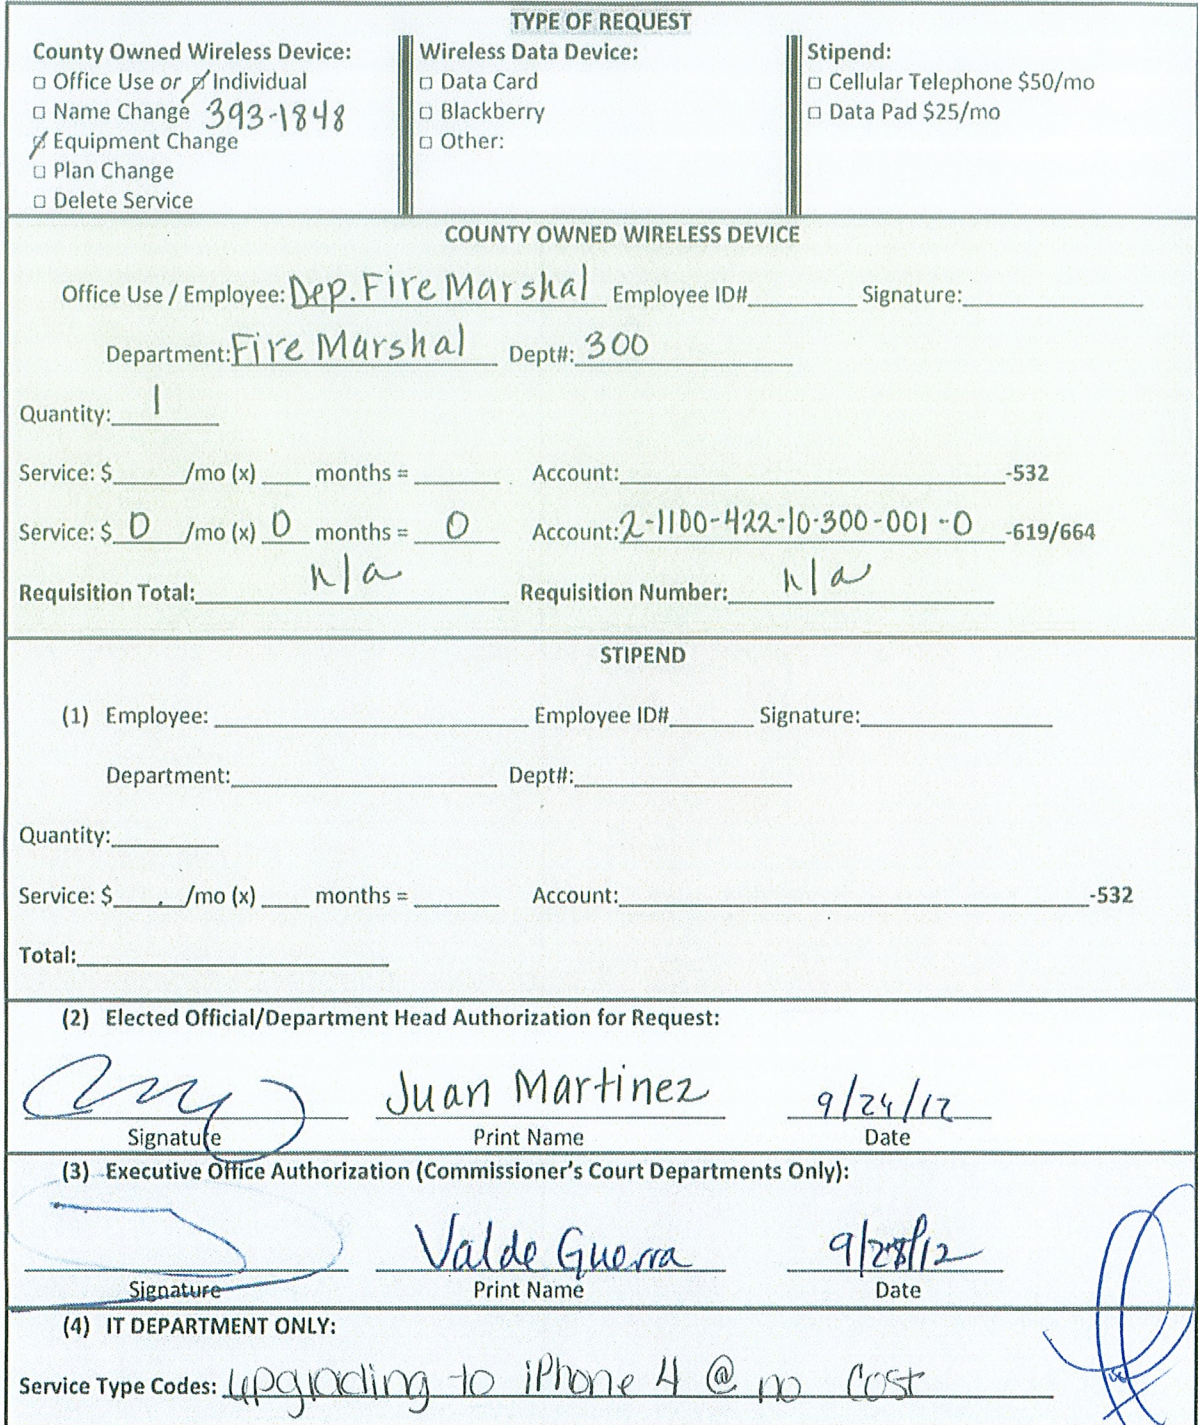 TYPE OF REQUEST
County Owned Wireless Device:
□ Office Use or ☑ Individual
□ Name Change 393-1848
☑ Equipment Change
□ Plan Change
□ Delete Service
Wireless Data Device:
□ Data Card
□ Blackberry
□ Other:
Stipend:
□ Cellular Telephone $50/mo
□ Data Pad $25/mo
COUNTY OWNED WIRELESS DEVICE
Office Use / Employee: Dep. Fire Marshal Employee ID#________ Signature:________
Department: Fire Marshal Dept#: 300
Quantity: 1
Service: $______/mo (x) ____ months = _______ Account:________ -532
Service: $ 0 /mo (x) 0 months = 0 Account: 2-1100-422-10-300-001-0 -619/664
Requisition Total: n/a Requisition Number: n/a
STIPEND
(1) Employee: ________ Employee ID#________ Signature:________
Department:________ Dept#:________
Quantity:________
Service: $______/mo (x) ____ months = _______ Account:________ -532
Total:________
(2) Elected Official/Department Head Authorization for Request:
Juan Martinez 9/24/12
Signature Print Name Date
(3) Executive Office Authorization (Commissioner's Court Departments Only):
Valde Guerra 9/28/12
Signature Print Name Date
(4) IT DEPARTMENT ONLY:
Service Type Codes: upgrading to iPhone 4 @ no cost